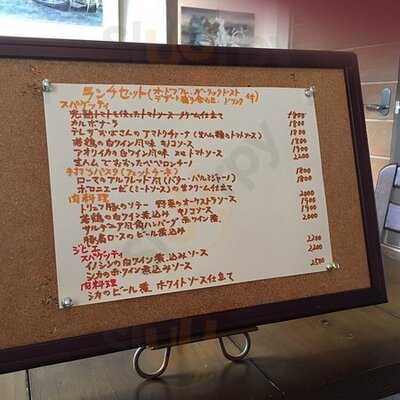 ランチセット(オードブル、ガーリックトースト
デザート盛り合わせ、ドリンク 付)
スパゲッティ
完熟トマトを使ったトマトソース クリーム仕立て 1800
カルボナーラ 1800
テレザおばさんのアマトリチャーナ(生ハムのトマトソース) 1800
若鶏の白ワイン風味 キノコソース 1800
アオリイカの白ワイン風味 トマトソース 1900
生ハムで 2200
手打ちパスタ(フェットチーネ)
ローマのアルフレッド風(バター・パルミジャーノ) 1800
ボロニエーゼ(ミートソース)の生クリーム仕立て 1900
肉料理
トリュフ 豚のソテー 野菜の ソース 2000
若鶏の白ワイン煮込み キノコソース 1900
サルデーニア風角ハンバーグ 赤ワイン煮 2000
豚肩ロースのビール煮込み
ジビエ
スパゲッティ 2200
イノシシの白ワイン煮込みソース 2200
シカの赤ワイン煮込みソース
肉料理 2500
シカのビール煮 ホワイトソース仕立て